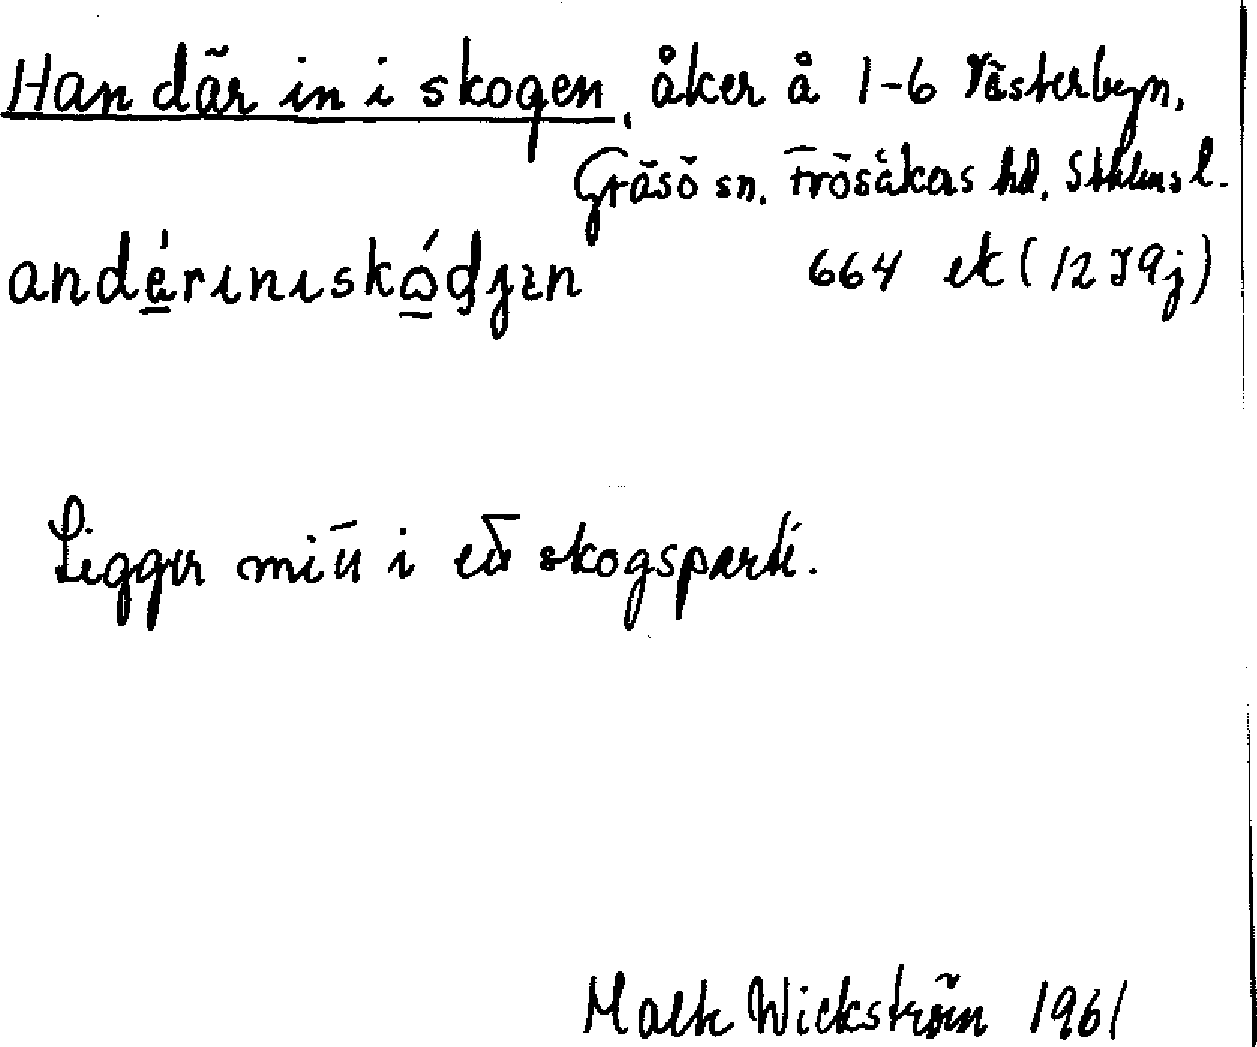 Han där in i skogen, åker å 1-6 Västerbyn,
Gräsö sn. Frösåkers hd. Sthlms l.
andérıniskódjın 664 ek (12 I 9j)
Ligger mitt i ett skogsparti.
Malte Wickström 1961